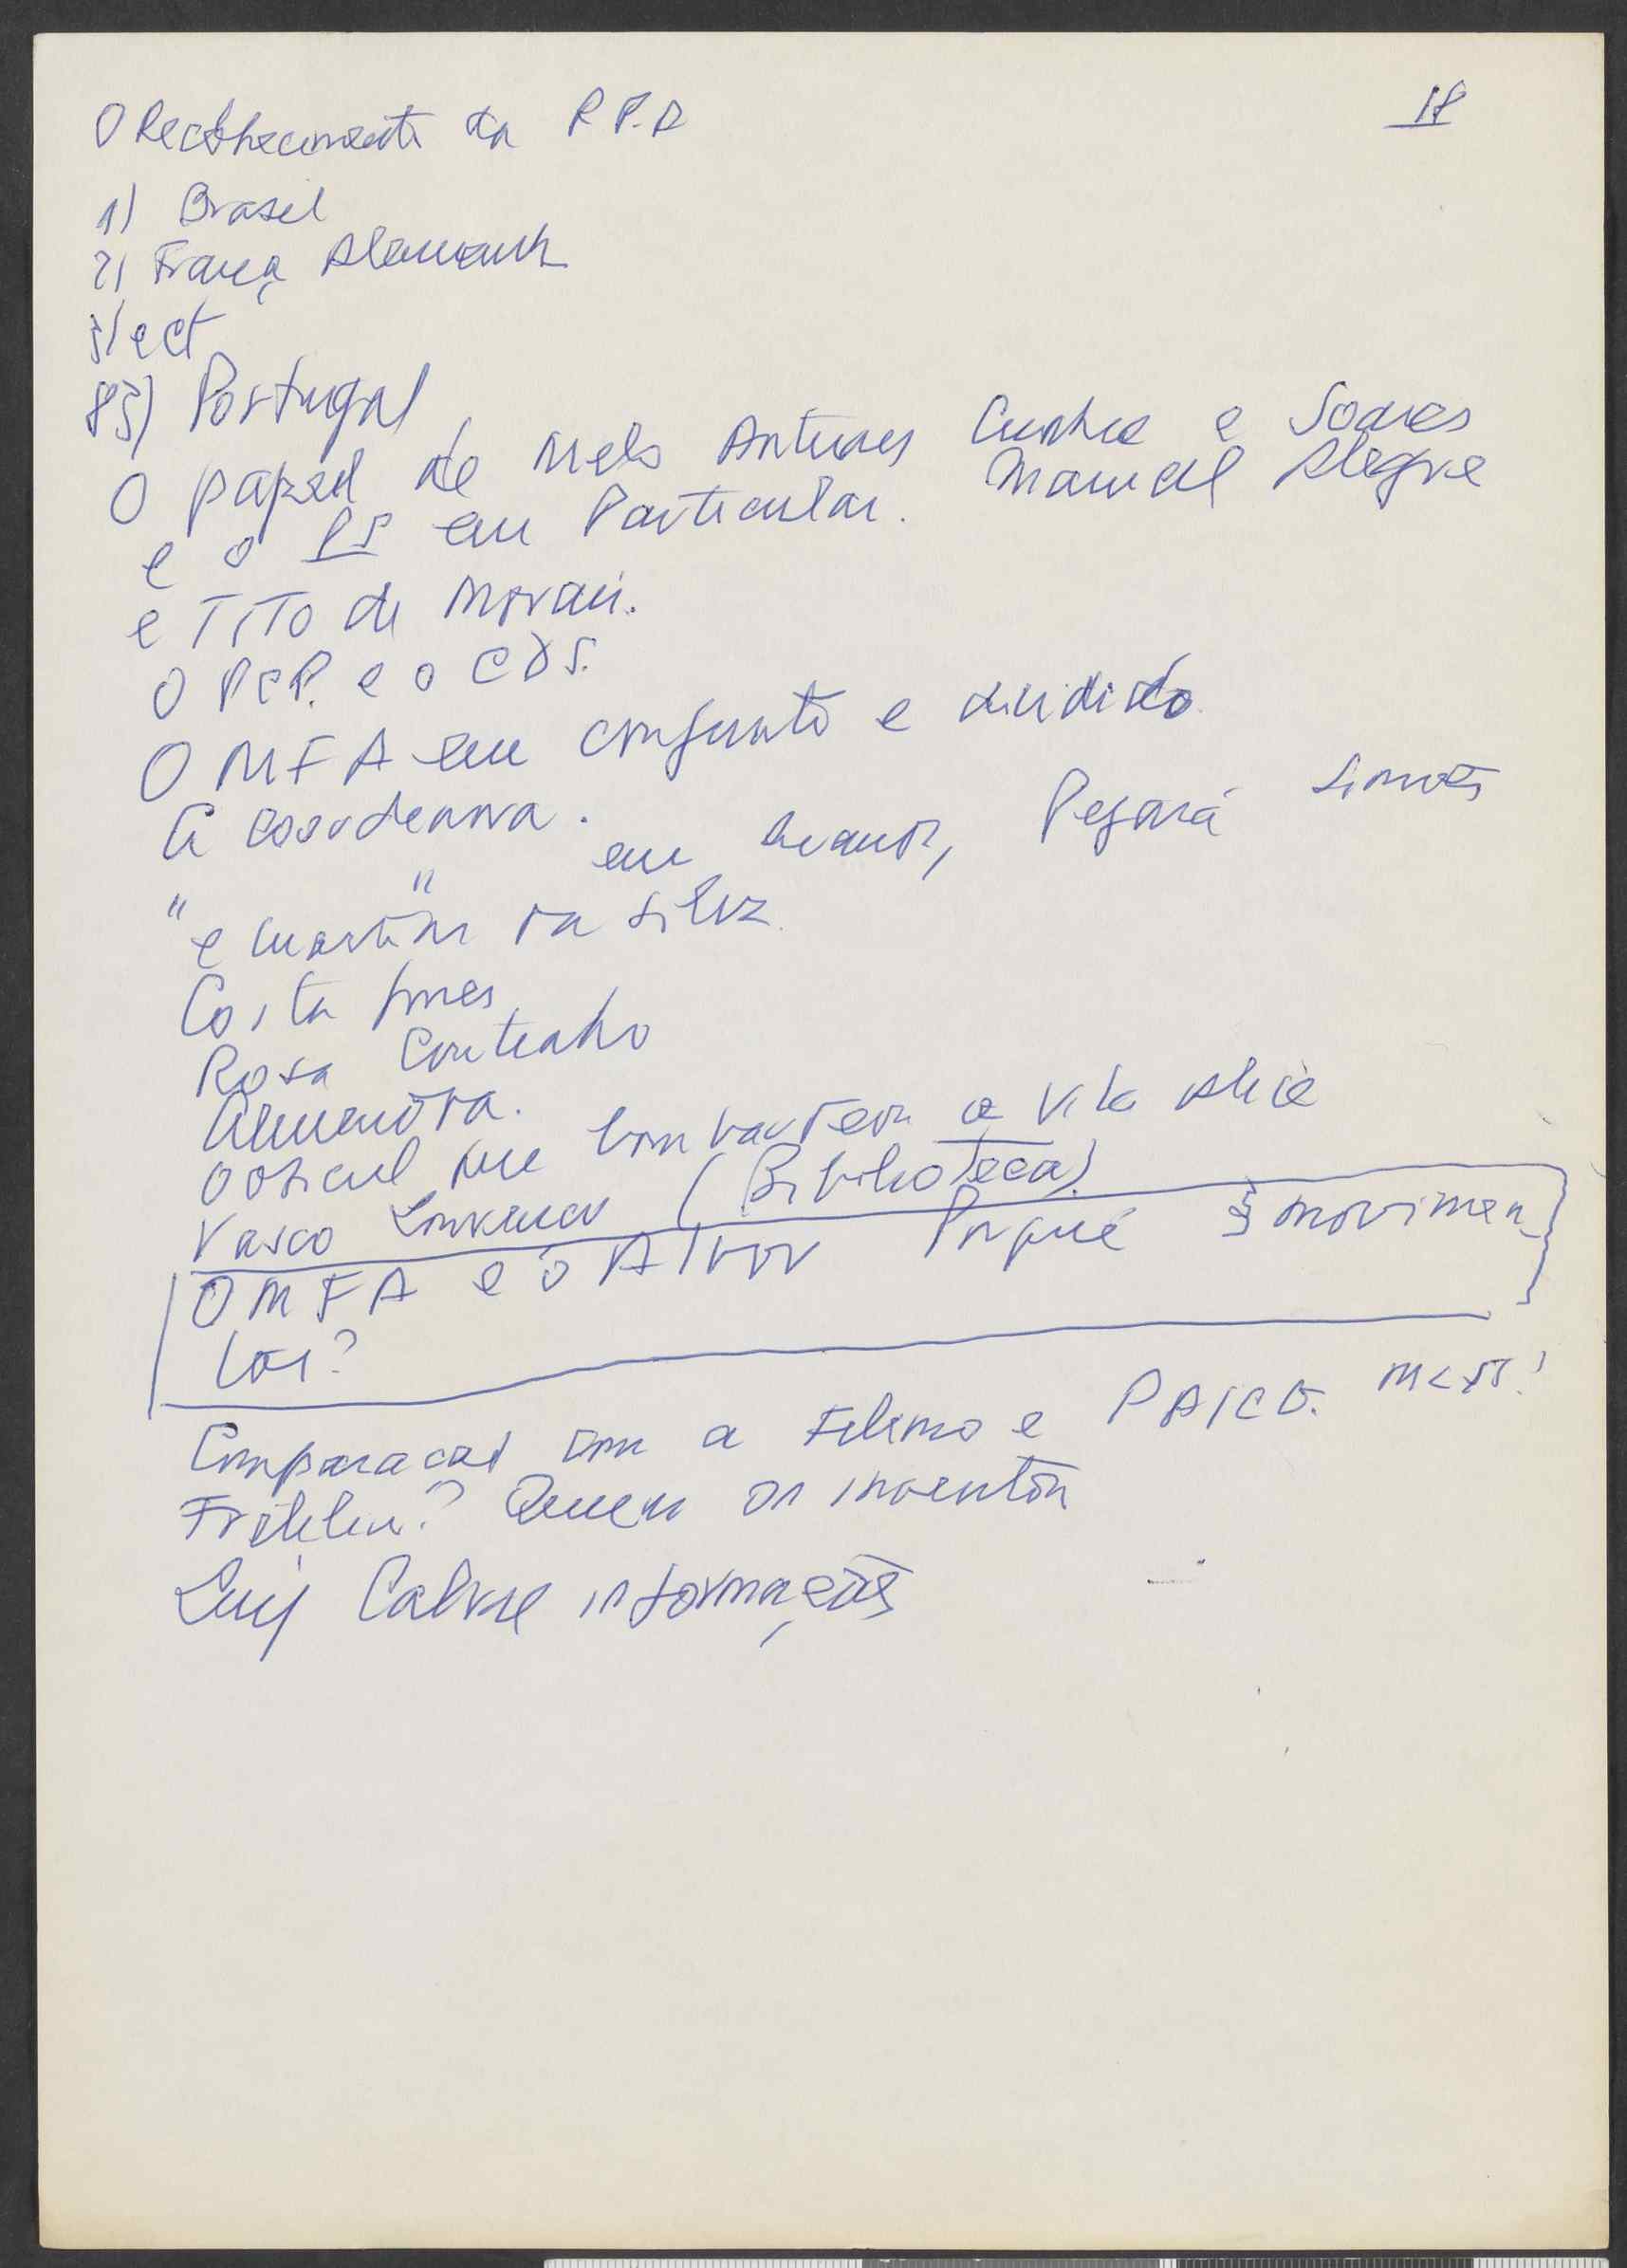 18
O Reconhecimento da R.P.A
1) Brasil
2) França Alemanha
3) ect
83) Portugal
O papel de Melo Antunes Cunhal e Soares
e o PS em Particular. Manuel Alegre
e TITO de Morais.
O PCP. e o CDS.
O MFA em conjunto e dividido.
A coordenora.
" " em Luanda, Pezarát Simões
e Martins da Silva
Costa Gomes
Rosa Coutinho
Almendra.
O oficial que bombardeou a Vila Alice
Vasco Lourenço (Biblioteca)
O MFA e o Alvor Porquê 3 movimen
tos?
Comparacao com a Frelimo e PAIGC. MLSTP!
Fretilin? Quem os inventou
Luiz Cabral informações